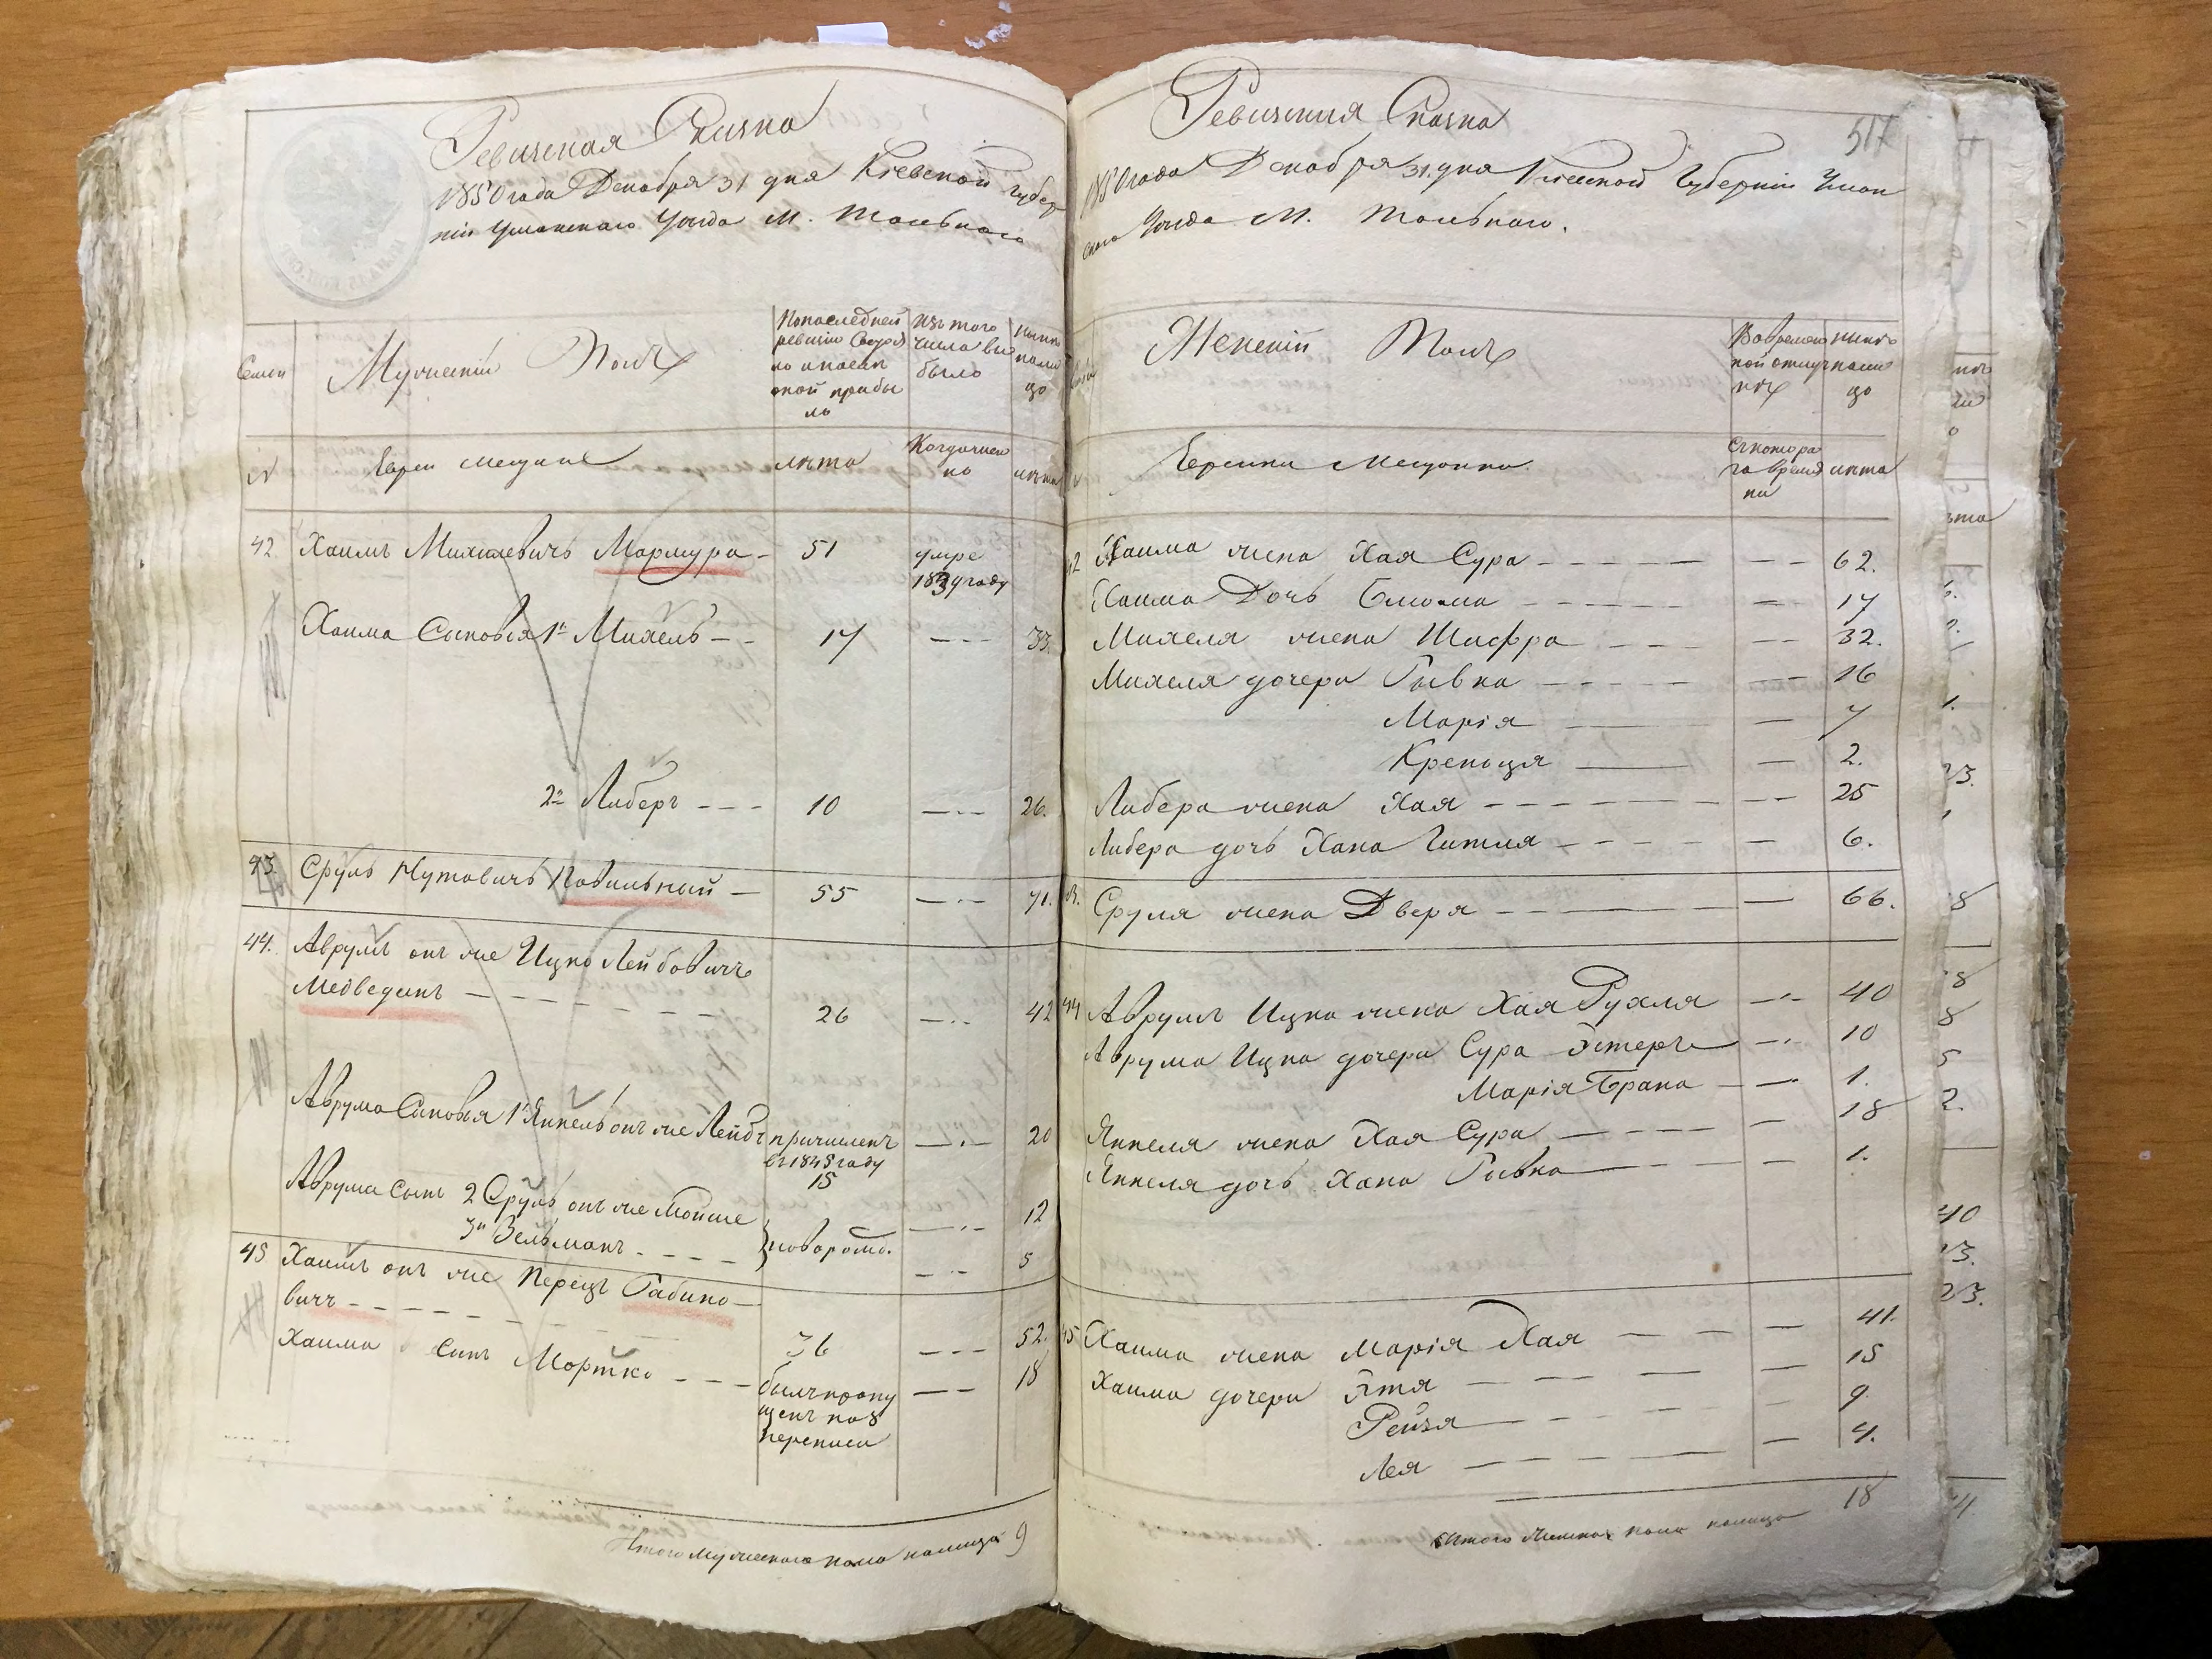 Ревизская Сказка
1850 года Декабря 31 дня Кіевской губер
ніи Уманскаго Уѣзда М. Тальнаго
Семьи
Мужескій Полъ
По последней
ревизіи состоя
ло и после
оной прибы
ло
Изъ того
числа вы
было
Ныне
нали
цо
№
Евреи мещане
лѣта
Когда имен
но
лѣта
42 Хаимъ Михилевичъ Мармура - 51 умре
1834 году
Хаима Сыновья 1й Михель - - 17 - - - 33.
2й Либеръ - - - 10 - - - 26.
43. Сруль Нутовичъ Повильный - 55 - - - 71.
44. Аврумъ онъ же Ицко Лейбовичъ
Медведикъ - - - - - 26 - - - 42
Аврума Сыновья 1й Янкель онъ же Лейбъ причисленъ - - - 20
въ 1848 году
15
Аврума Сынъ 2 Сруль онъ же Мойше - - - 12
3й Зельманъ - - - новорожд. - - - 5
45 Хаимъ онъ же Перецъ Рабино-
вичъ - - - - - 36 - - - 52.
Хаима Сынъ Мортко - - - былъ пропу - - 18
щенъ по 8
переписи
Итого мужескаго пола налицо 9
Ревизская Сказка
517
1850 года Декабря 31 дня Кіевской Губерніи Уман
скаго Уѣзда М. Тальнаго.
Женскій Полъ
Во времен
ной отлуч
кѣ
Ныне
нали
цо
Еврейки Мещанки
Съ котора
го време
ни
лѣта
42 Хаима жена Хая Сура - - - - - - - 62.
Хаима Дочь Блюма - - - - - - 17
Михеля жена Шифра - - - - - - 32.
Михеля дочери Рывка - - - - - - 16
Марія - - 7
Креньця - - 2.
Либера жена Хая - - - - - - - - 25
Либера дочь Хана Гитля - - - - - - 6.
43. Сруля жена Дверя - - - - 66.
44 Аврумъ Ицка жена Хая Рухля - - - 40
Аврума Ицка дочери Сура Эстеръ - - - 10
Марія Брана - - - 1.
Янкеля жена Хая Сура - - - - - 18
Янкеля дочь Хана Рывка - - - - 1.
45 Хаима жена Марія Хая - - - - 41.
Хаима дочери Этя - - - - - 15
Рейзя - - - - - 9
Лея - - - - - 4.
Итого женска пола налицо 18